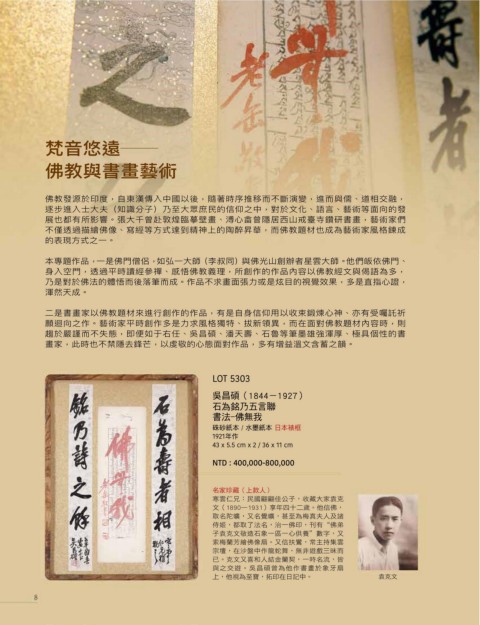 之
佛無我
老缶敬
壽者
梵音悠遠——
佛教與書畫藝術
佛教發源於印度，自東漢傳入中國以後，隨著時序推移而不斷演變，進而與儒、道相交融，
逐步進入士大夫（知識分子）乃至大眾庶民的信仰之中，對於文化、語言、藝術等面向的發
展也都有所影響，張大千曾赴敦煌臨摹壁畫、溥心畬曾隱居西山戒臺寺鑽研書畫，藝術家們
不僅透過描繪佛像、寫經等方式達到精神上的陶醉昇華，而佛教題材也成為藝術家風格鍊成
的表現方式之一。
本專題作品，一是佛門僧侶，如弘一大師（李叔同）與佛光山創辦者星雲大師。他們皈依佛門、
身入空門，透過平時讀經參禪、感悟佛教義理，所創作的作品內容以佛教經文與偈語為多，
乃是對於佛法的體悟而後落筆而成。作品不求畫面張力或是炫目的視覺效果，多是直指心證，
渾然天成。
二是書畫家以佛教題材來進行創作的作品，有是自身信仰用以收束鍛煉心神、亦有受囑託祈
願迴向之作。藝術家平時創作多是力求風格獨特、拔新領異，而在面對佛教題材內容時，則
趨於嚴謹而不失態，即便如于右任、吳昌碩、潘天壽、石魯等筆墨雄強渾厚、極具個性的書
畫家，此時也不禁隱去鋒芒，以虔敬的心態面對作品，多有增益溫文含蓄之韻。
石為壽者相
佛無我
銘乃詩之餘
LOT 5303
吳昌碩（1844－1927）
石為銘乃五言聯
書法–佛無我
硃砂紙本 / 水墨紙本 日本裱框
1921年作
43 x 5.5 cm x 2 / 36 x 11 cm
NTD : 400,000-800,000
名家珍藏（上款人）
寒雲仁兄：民國翩翩佳公子，收藏大家袁克
文（1890－1931）享年四十二歲，他信佛，
與之交遊，吳昌碩曾為他作書畫於象牙扇
上，他視為至寶，拓印在日記中。
袁克文
8